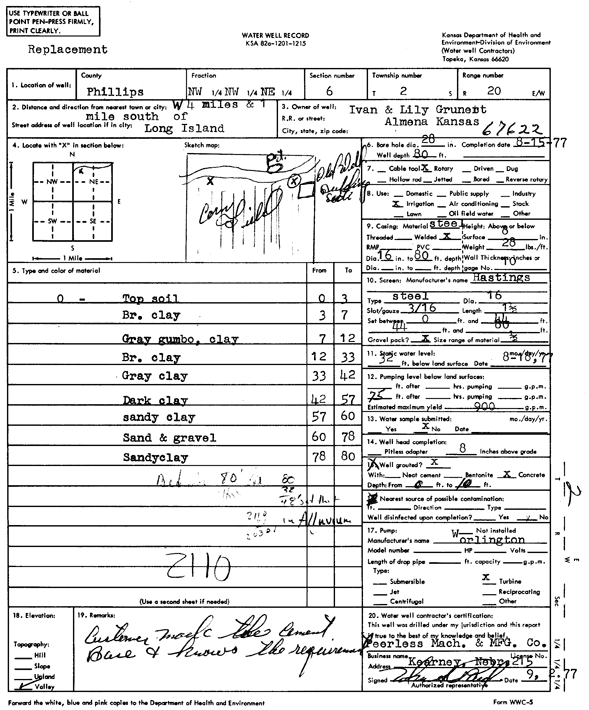 USE TYPEWRITER OR BALL
POINT PEN-PRESS FIRMLY,
PRINT CLEARLY.
Replacement
WATER WELL RECORD
KSA 82a-1201-1215
Kansas Department of Health and
Environment-Division of Environment
(Water well Contractors)
Topeka, Kansas 66620
1. Location of well:
County
Phillips
Fraction
NW 1/4 NW 1/4 NE 1/4
Section number
6
Township number
T 2 S
Range number
R 20 E/W
2. Distance and direction from nearest town or city: W 4 miles & 1
mile south of
Street address of well location if in city: Long Island
3. Owner of well: Ivan & Lily Grunert
R.R. or street: Almena Kansas
City, state, zip code: 67622
4. Locate with "X" in section below:
N
NW
NE
W
E
SW
SE
S
1 Mile
1 Mile
Sketch map:
Pit
X
X
Old Well
Corn Field
6. Bore hole dia. 28 in. Completion date 8-15-77
Well depth 80 ft.
7. Cable tool X Rotary Driven Dug
Hollow rod Jetted Bored Reverse rotary
8. Use: Domestic Public supply Industry
X Irrigation Air conditioning Stock
Lawn Oil field water Other
9. Casing: Material steel Height: Above or below
Threaded Welded X Surface 8 in.
RMP PVC Weight 28 lbs./ft.
Dia. 16 in. to 80 ft. depth Wall Thickness: inches or
Dia. in. to ft. depth gage No. 10
10. Screen: Manufacturer's name Hastings
Type steel Dia. 16
Slot/gauze 3/16 Length
Set between 0 ft. and 44 ft.
44 ft. and 80 ft.
Gravel pack? X Size range of material
11. Static water level: mo./day/yr.
32 ft. below land surface Date 8-18,77
12. Pumping level below land surfaces:
ft. after hrs. pumping g.p.m.
75 ft. after hrs. pumping g.p.m.
Estimated maximum yield 900 g.p.m.
13. Water sample submitted: mo./day/yr.
Yes X No Date
14. Well head completion:
Pitless adapter 8 Inches above grade
15. Well grouted? X
With: Neat cement Bentonite X Concrete
Depth: From 0 ft. to 10 ft.
16. Nearest source of possible contamination:
ft. Direction Type
Well disinfected upon completion? Yes No
17. Pump: Not installed
Manufacturer's name Worlington
Model number HP Volts
Length of drop pipe ft. capacity g.p.m.
Type:
Submersible X Turbine
Jet Reciprocating
Centrifugal Other
5. Type and color of material From To
0 - Top soil 0 3
Br. clay 3 7
Gray gumbo, clay 7 12
Br. clay 12 33
Gray clay 33 42
Dark clay 42 57
sandy clay 57 60
Sand & gravel 60 78
Sandyclay 78 80
80
32
48'
2110
in Alluvium
2110
(Use a second sheet if needed)
18. Elevation:
Topography:
Hill
Slope
Upland
Valley
19. Remarks:
Customer made the cement
Base & knows the requirement
20. Water well contractor's certification:
This well was drilled under my jurisdiction and this report
is true to the best of my knowledge and belief.
Peerless Mach. & MFG. Co.
Business name License No.
Address Kearney, Nebr. 215
Signed Date 9, 2 77
Authorized representative
T 2
R
W E
Sec
1/4 1/4 1/4
Forward the white, blue and pink copies to the Department of Health and Environment
Form WWC-5